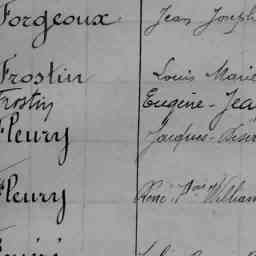 Forgeoux Jean Joseph
Frostin Louis Marie
Frostin Eugène-Jea
Fleury Jacques-Désir
Fleury René William